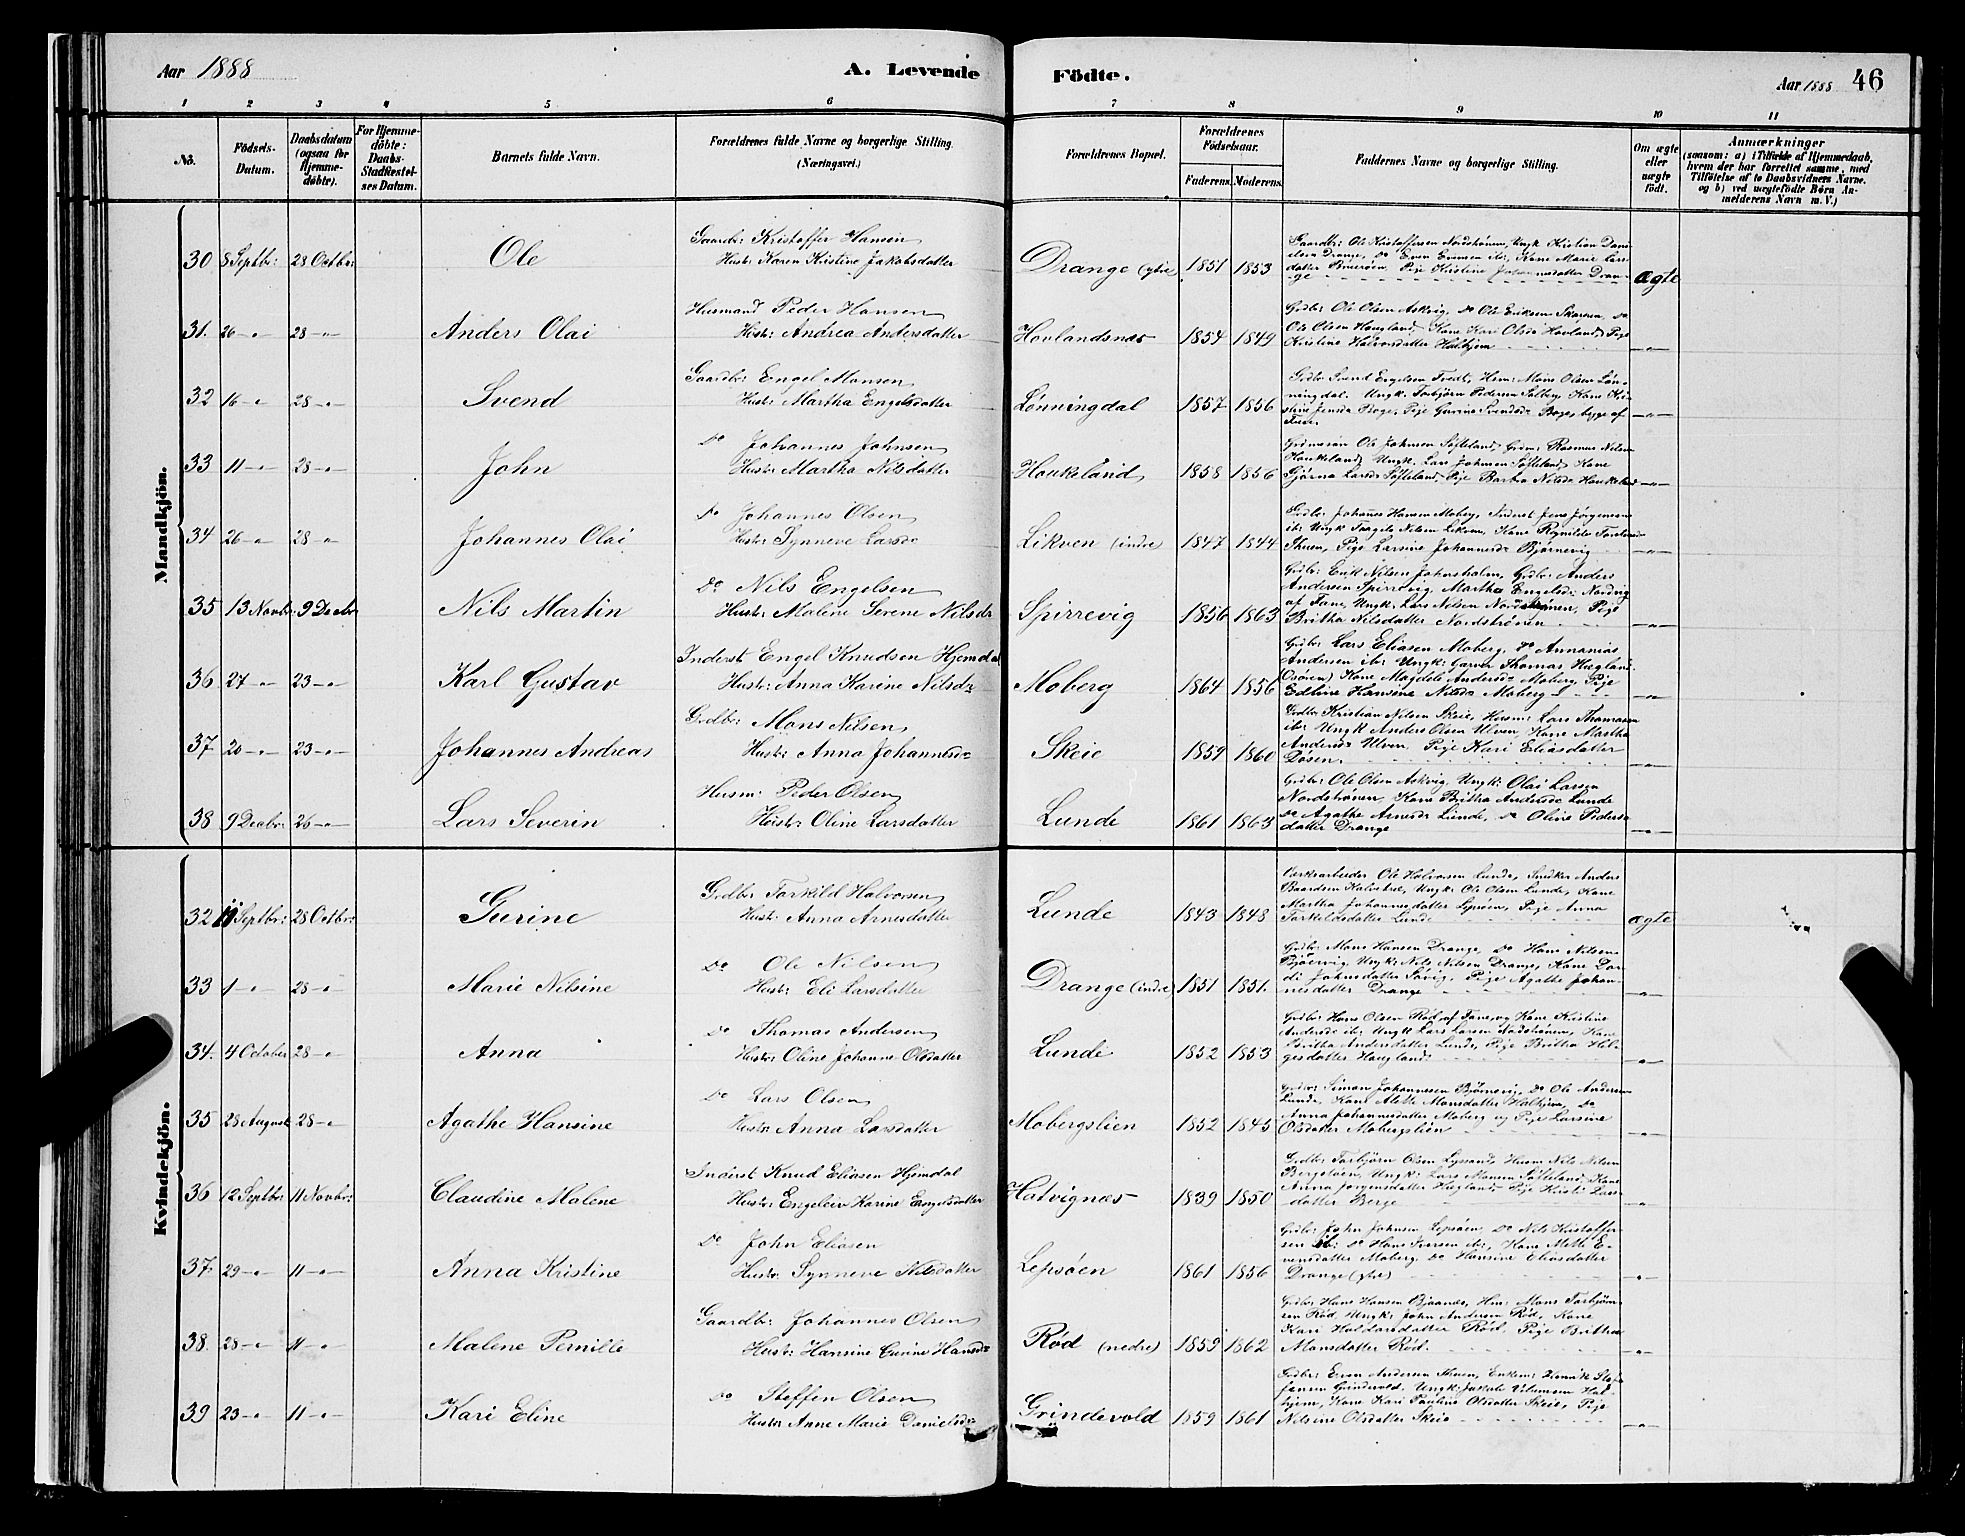 Aar 1888
A. Levende
Födte.
Aar 1888
46
1 2 3 4 5 6 7 8 9 10 11
No.
Födsels-Datum.
Daabsdatum (ogsaa for Hjemme-döbte).
For Hjemme-döbte: Daabs-Stadfæstel-ses Datum.
Barnets fulde Navn.
Forældrenes fulde Navne og borgerlige Stilling. (Næringsvei.)
Forældrenes Bopæl.
Forældrenes Födselsaar.
Faderens. Moderens.
Faddernes Navne og borgerlige Stilling.
Om ægte eller uægte födt.
Anmærkninger
(saasom: a) i Tilfælde af Hjemmedaab, hvem der har forrettet samme, med Tilföielse af to Daabsvidners Navne. og b) ved uægtefödte Börn An-melderens Navn m. V.)
Mandkjön.
30 8 Septbr: 28 Octbr: Ole
Gaardbr: Kristoffer Hansen
Hustr: Karen Kristine Jakobsdatter
Drange (ytre) 1851 1853
Gaardbr: Ole Kristoffersen Nordstrønen, Ungk. Kristian Dani-
ægte
31. 26 -"- 28 -"- Anders Olai
Husmand Peder Hansen
Hustr: Andrea Andersdatter
Hovlandsnæs 1854 1849
Grdbr: Ole Olsen Askvig, Do Ole Eriksen Do
Ole Olsen Haugland, Kone Kari Olsd. Hovland, Pige
Kristine Halvorsdatter Halhjem
-"-
32 16 -"- 28 -"- Svend
Gaardbr: Engel Monsen
Hustr: Martha Engelsdatter
Lønningdal 1857 1856
Grdbr Svend Engelsen Tvedt, Hsm: Mons Olsen Løn-
ningdal. Ungk. Torbjørn Pedersen Solberg, Kone Kri-
stine Jensda Boge, Pige Gurine Svendsdr Boge, begge af
Fuse.
-"-
33 11 -"- 28 -"- John
Do Johannes Johnsen
Hustr Martha Nilsdatter
Houkeland 1858 1856
Grdmesøn Ole Johnsen Søfteland, Grdm: Rasmus Nilsen
Houkeland, Ungk. Lars Johnsen Søfteland, Kone
Gjørna Larsdr Søfteland, Pige Barbra Nilsdr Houkeland
-"-
34 26 -"- 28 -"- Johannes Olai
Do Johannes Olsen
Hustr Synneve Larsdr
Likven (indre) 1847 1844
Grdbr: Johannes Hansen Moberg, Inderst Jens Jørgensen
Skuen, Pige Larsine Johannesdr Bjørnevig
-"-
35 13 Novbr: 9 Decbr Nils Martin
Do Nils Engelsen
Hustr: Malene Serene Nilsdr
Spirrevig 1856 1863
Grdbr: Erik Nilsen Johnsholm, Grdbr: Anders
Andersen Spirrevig, Martha Engelsdr Nordvig
af Fane, Ungk: Lars Nilsen Nordstrønen, Pige
Britha Nilsdatter Nordstrønen
-"-
36 27 -"- 23 -"- Karl Gustav
Inderst Engel Knudsen Hjemdal
Hustr: Anna Karine Nilsdr
Moberg 1864 1856
Grdbr: Lars Eliasen Moberg, Do Annanias
Andersen ibr Ungk: Garver Thomas Haugland
(Osøren) Kone Magdeli Andersdr Moberg, Pige
Edtine Hansine Nilsdr Moberg
-"-
37 20 -"- 23 -"- Johannes Andreas
Grdbr: Mons Nilsen
Hustr: Anna Johannesdr
Skeie 1859 1860
Grdbr: Kristian Nilsen Skeie, Husm: Lars Thomasen
ibr Ungk Anders Olsen Ulven, Kone Martha
Andersdr Ulven, Pige Kari Eliasdatter
Døsen.
-"-
38 9 Decbr: 26 -"- Lars Severin
Husm: Peder Olsen
Hustr: Oline Larsdatter
Lunde 1861 1863
Grdbr: Ole Olsen Askvig, Ungk: Olai Larsen
Nordstrønen, Kone Britha Andersdr Lunde
Do Agathe Arnesdr Lunde, Do Oline Peders-
datter Drange
-"-
Kvindekjön.
32 11 Septbr: 28 Octbr: Gurine
Grdbr: Torkild Halvorsen
Hustr: Anna Arnesdatter
Lunde 1843 1848
Værksarbeider Ole Halvorsen Lunde, Snedker Anders
Baardsen Ungk: Ole Olsen Lunde, Kone
Martha Johannesdatter Lepsøen, Pige Anna
Torkeldsdatter Lunde
ægte
33 1 -"- 28 -"- Marie Nilsine
Do Ole Nilsen
Hustr: Eli Larsdatter
Drange (indre) 1851 1851.
Grdbr: Mons Hansen Drange, Do Hans Nilsen
Ungk: Nils Nilsen Drange, Kone Dor-
di Johnsdatter Søvig, Pige Agathe Johan-
nesdatter Drange
-"-
34. 4 October 28 -"- Anna
Do Thomas Andersen
Hustr: Oline Johanne Olsdatter
Lunde 1852 1853
Grdbr: Hans Olsen Rød af Fane, og Kone Kristine
Andersdr ibr Ungk Lars Larsen Nordstrønen, Kone
Britha Andersdatter Lunde, Pige Britha Hel-
gesdatter Haugland
-"-
35 28 August 28 -"- Agathe Hansine
Do Lars Olsen
Hustr Anna Larsdatter
Mobergslien 1852 1845
Grdbr: Simon Johannessen Bjørnevig, Do Ole Andersen
Lunde, Kone Alette Monsdatter Halhjem, Do
Anna Johannesdatter Moberg og Pige Larsine
Olsdatter Mobergslien
-"-
36 12 Septbr: 11 Novbr: Claudine Malene
Inderst Knud Eliasen Hjemdal
Hustr: Engelein Karine Engelsdatter
Hatvignæs 1839 1850
Grdbr: Torbjørn Olsen Lyssand, Husm Nils Nilsen
Ungk: Lars Monsen Søfteland, Kone
Anna Jørgensdatter Haugland, Pige Kristi Lars-
datter Berge
-"-
37. 29 -"- 11 -"- Anna Kristine
Do John Eliasen
Hustr: Synneve Nilsdatter
Lepsøen 1861 1856
Grdbr: John Johnsen Lepsøen, Do Nils Kristoffer-
sen ib: Do Hans Iversen ibr, Kone Mette E-
Moberg, Do Hansine Eliasdatter
Drange (ytre)
-"-
38. 28 -"- 11 -"- Malene Pernille
Gaardbr: Johannes Olsen
Hustr: Hansine Gurine Hansdr
Rød (nedre) 1859 1862
Grdbr: Hans Hansen Bjaanes, Hm: Mons Torbjørn-
sen Rød, Ungk: John Andersen Rød, Kone
Kari Haldorsdatter Rød, Pige Britha
Monsdatter Rød.
-"-
39 23 -"- 11 -"- Kari Eline
Do Steffen Olsen
Hustr Anne Marie Danielsdr
Grindevold 1859 1861
Grdbr: Even Andersen Skuen, Enkem: Stef-
fensen Grindevold. Ungk: Jakob Villumsen Hal-
hjem, Kone Kari Pauline Olsdatter Skeie, Pige
Nilsine Olsdatter Skeie
-"-